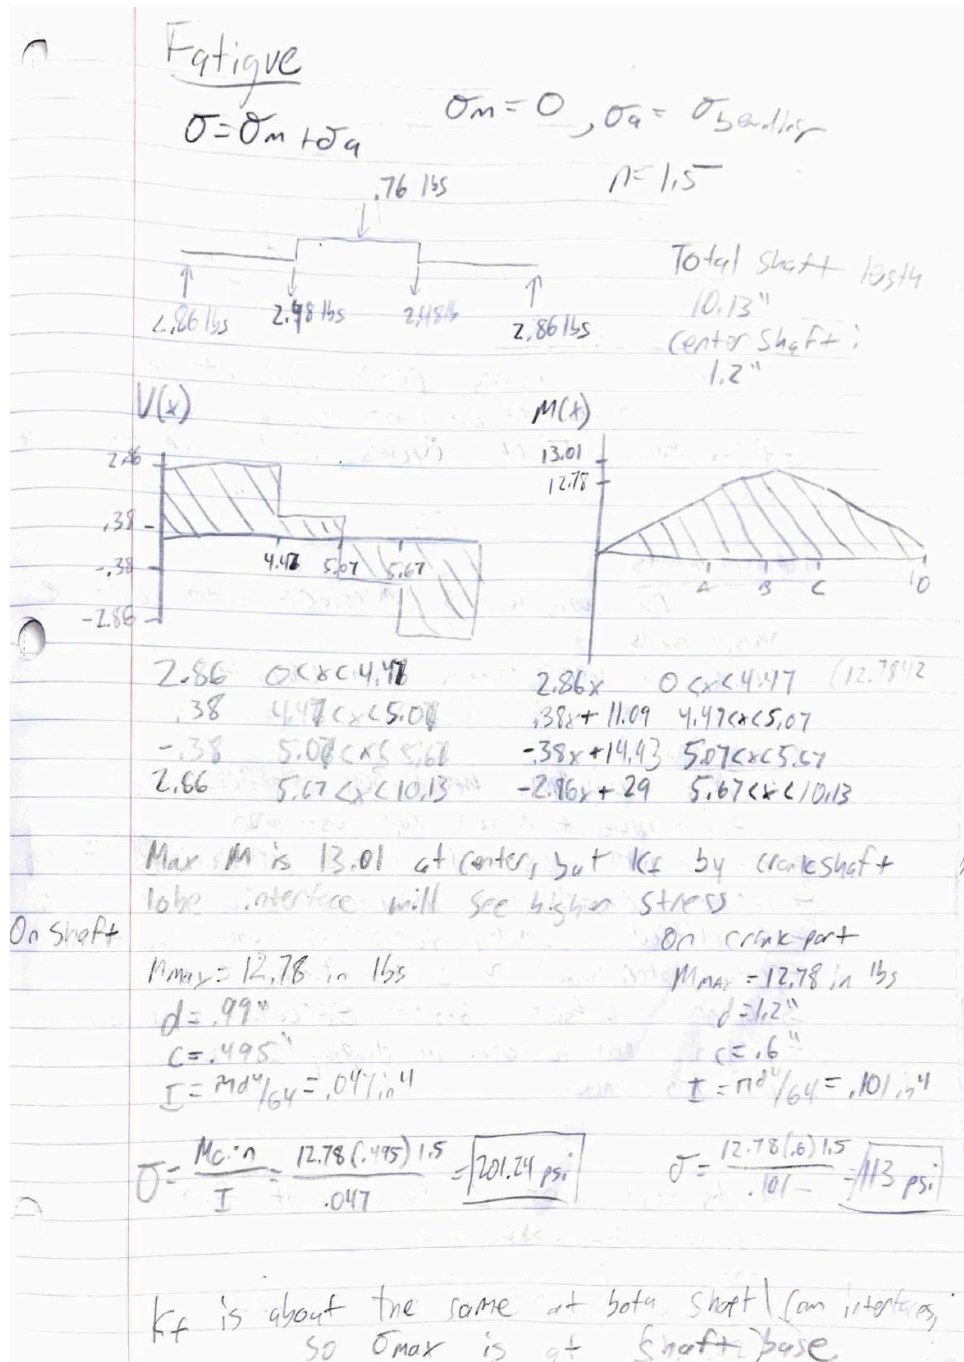 Fatigue
σ = σm + σa
σm = 0, σa = σbending
n = 1.5
.76 lbs
2.86 lbs 2.48 lbs 2.48 lb 2.86 lbs
Total shaft length
10.13"
center shaft:
1.2"
V(x)
2.86
.38
-.38
-2.86
4.47 5.07 5.67
M(x)
13.01
12.78
A B C D
2.86 0<x<4.47
.38 4.47<x<5.07
-.38 5.07<x<5.67
2.86 5.67<x<10.13
2.86x 0<x<4.47 (12.7842
.38x + 11.09 4.47<x<5.07
-.38x + 14.93 5.07<x<5.67
-2.86x + 29 5.67<x<10.13
Max M is 13.01 at center, but Kf by crankshaft
lobe interface will see higher stress
On shaft
Mmax = 12.78 in lbs
d = .99"
c = .495"
I = πd⁴/64 = .047 in⁴
σ = Mc·n / I = 12.78(.495)1.5 / .047 = 201.24 psi
On crank part
MMAX = 12.78 in lbs
d = 1.2"
c = .6"
I = πd⁴/64 = .101 in⁴
σ = 12.78(.6)1.5 / .101 = 113 psi
Kf is about the same at both shaft\cam interfaces,
so σmax is at shaft base